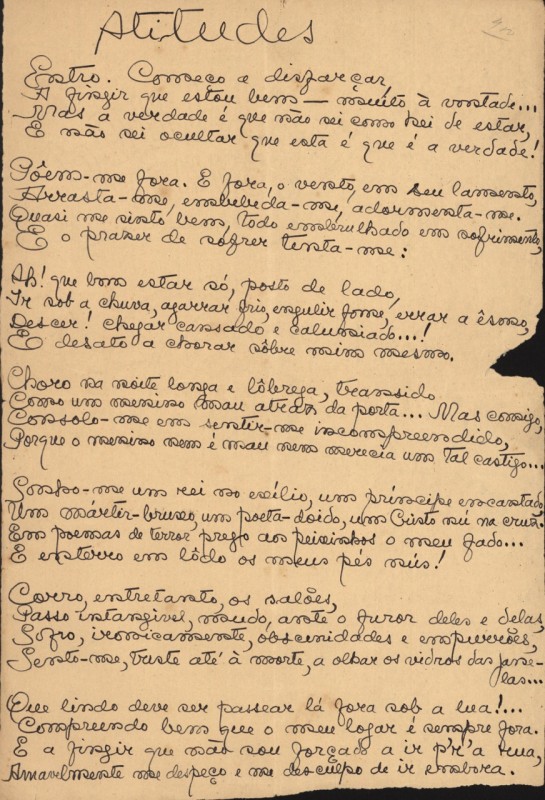 Atitudes
Entro. Começo a disfarçar,
A fingir que estou bem — muito à vontade...
Mas a verdade é que não sei como hei de estar,
E não sei ocultar que esta é que é a verdade!
Põem-me fora. E fora, o vento, em seu lamento,
Arrasta-me, embebeda-me, adormenta-me.
Quasi me sinto bem, todo embrulhado em sofrimento,
E o prazer de sofrer tenta-me:
Ah! que bom estar só, posto de lado,
Ir sob a chuva, agarrar frio, engulir fome, errar a êsmo,
Descer! chegar cansado e caluniado...!
E desato a chorar sôbre mim mesmo.
Choro na noite longa e lôbrega, transido
Como um menino mau atraz da porta... Mas comigo,
Consolo-me em sentir-me incompreendido,
Porque o menino nem é mau nem merecia um tal castigo...
Sonho-me um rei no exílio, um príncipe encantado,
Um mártir-bruxo, um poeta-doido, um Cristo nú na cruz.
Em poemas de terror prego aos peixinhos o meu fado...
E enterro em lôdo os meus pés nús!
Corro, entretanto, os salões,
Passo intangivel, mudo, ante o furor deles e delas,
Sofro, ironicamente, obscenidades e empurrões,
Sento-me, triste até à morte, a olhar os vidros das jane-
las...
Que lindo deve ser passear lá fora sob a lua!...
Compreendo bem que o meu logar é sempre fora.
E a fingir que não sou forçado a ir p'r'a rua,
Amavelmente me despeço e me desculpo de ir embora.